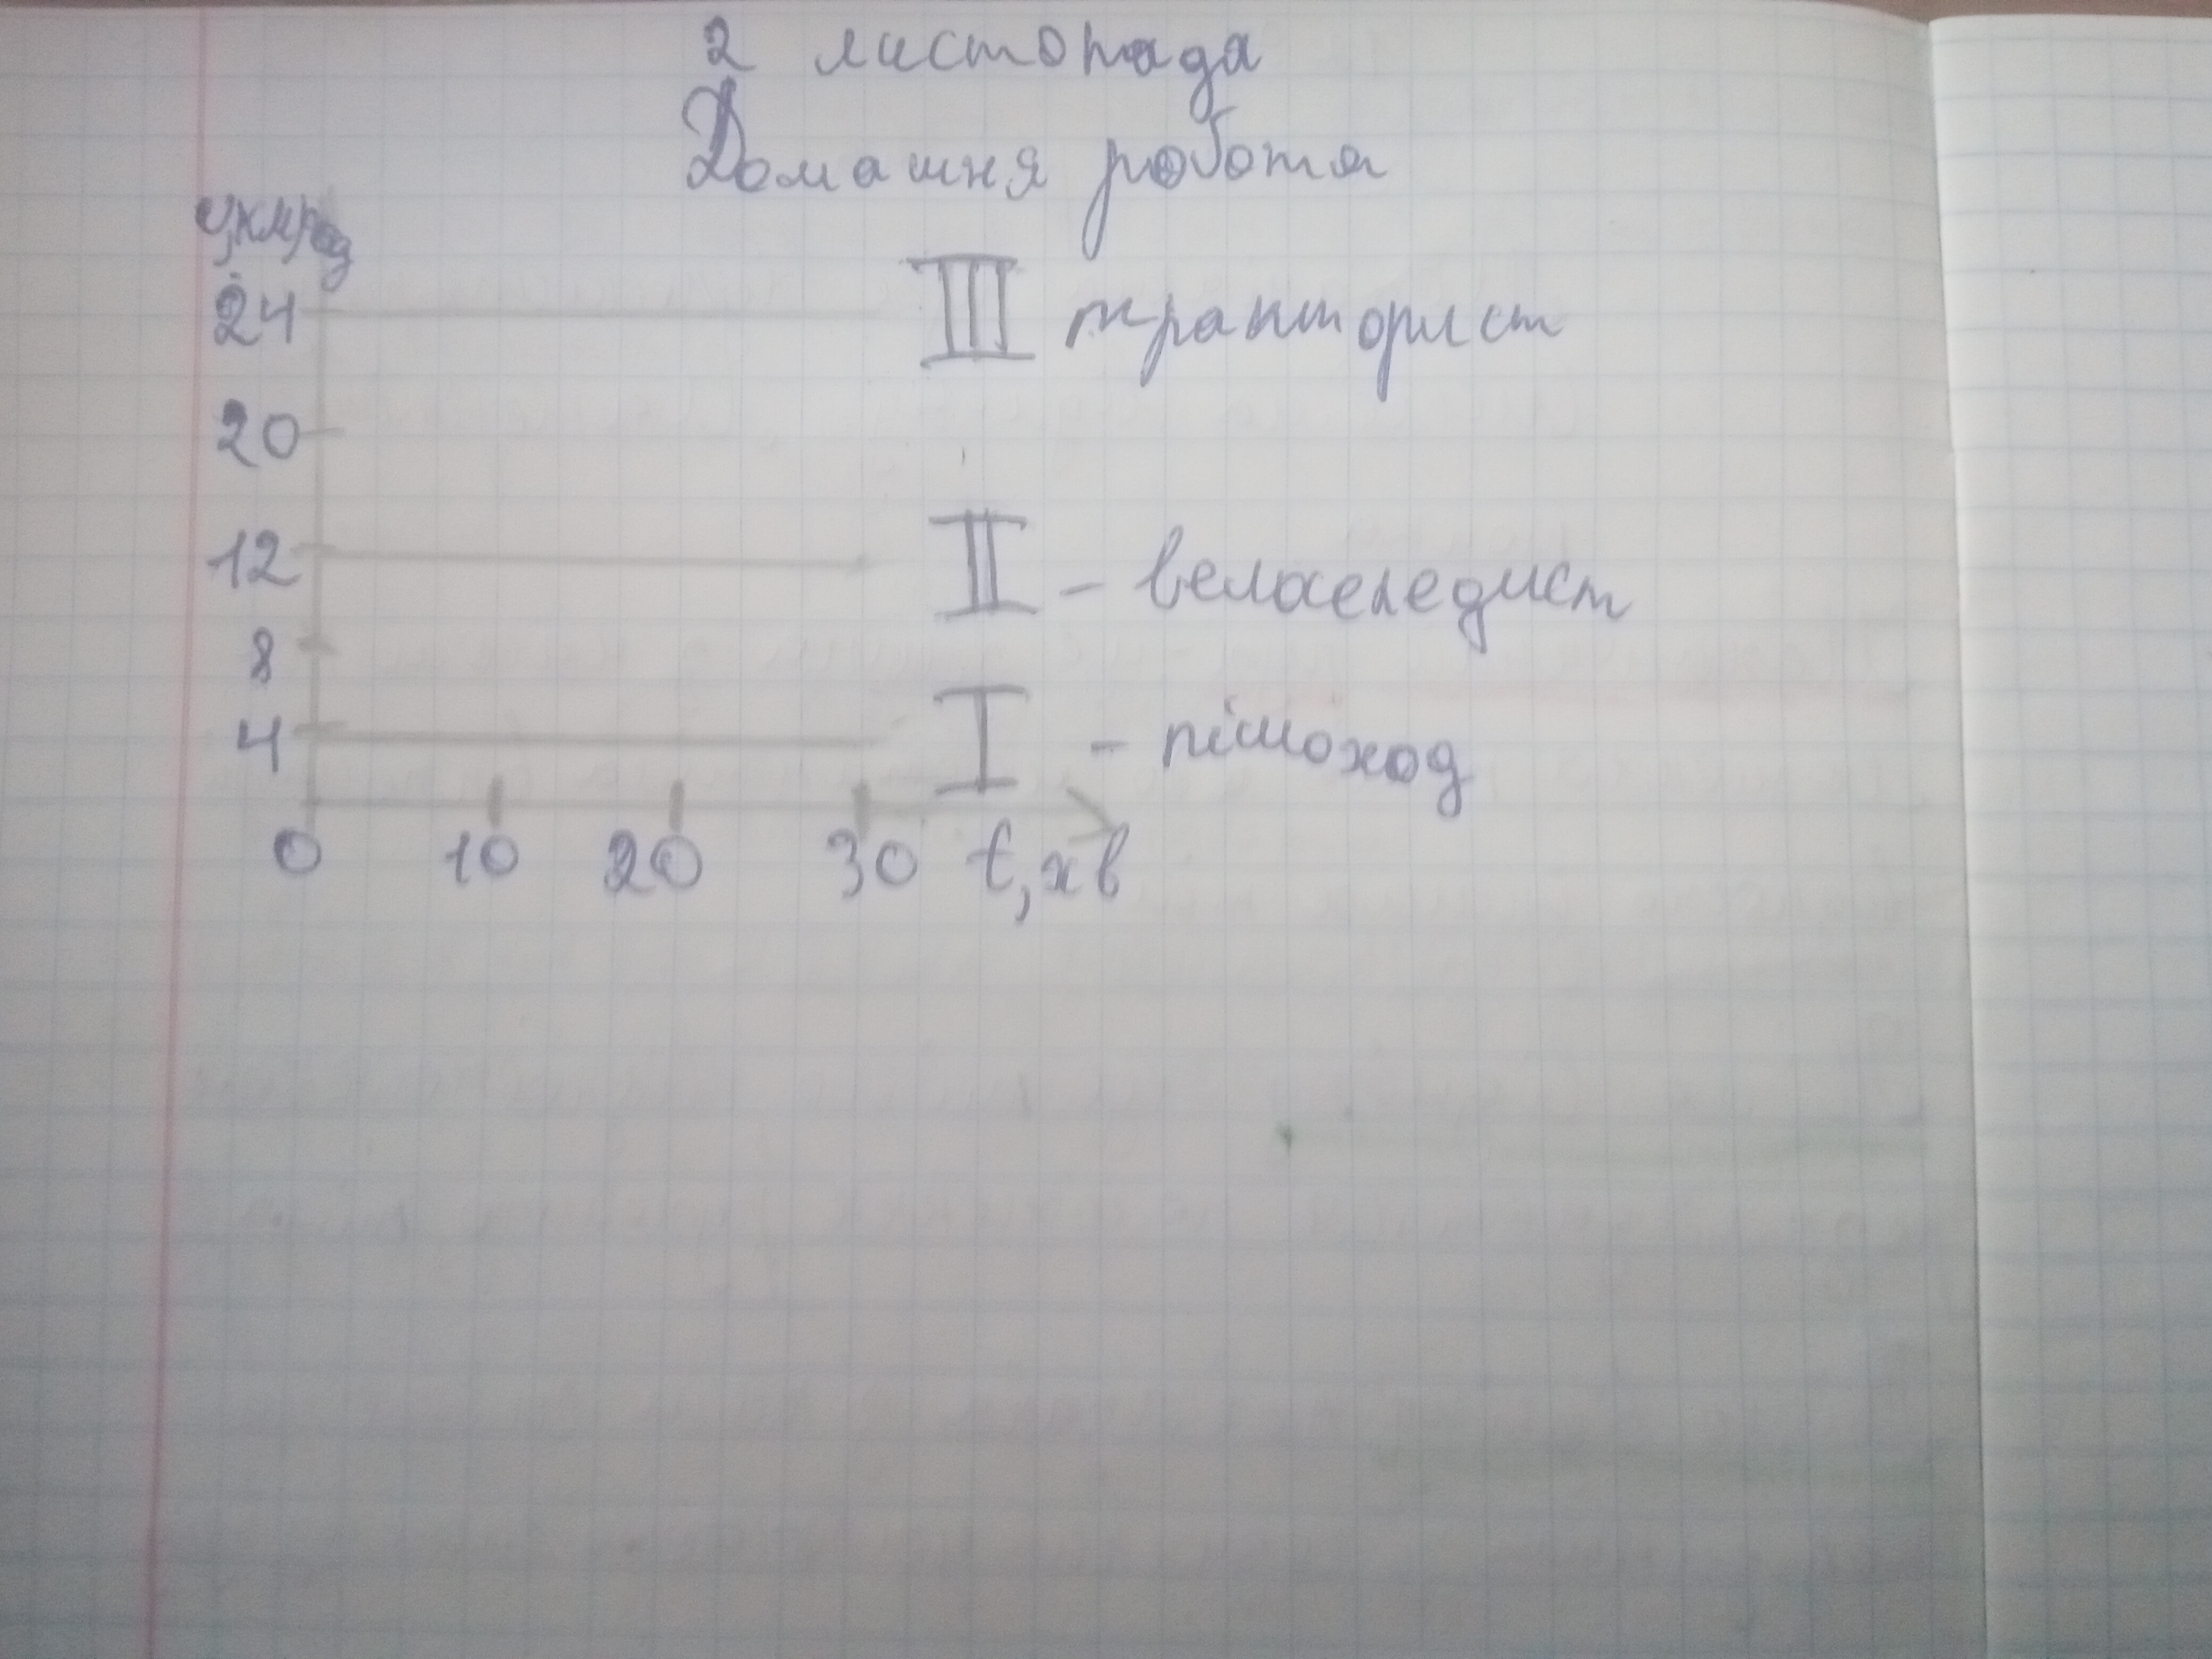 2 листопада
Домашня робота
v, км/год
24 III тракторист
20
12 II - велосепедист
8
4 I - пішоход
0 10 20 30 t, хв